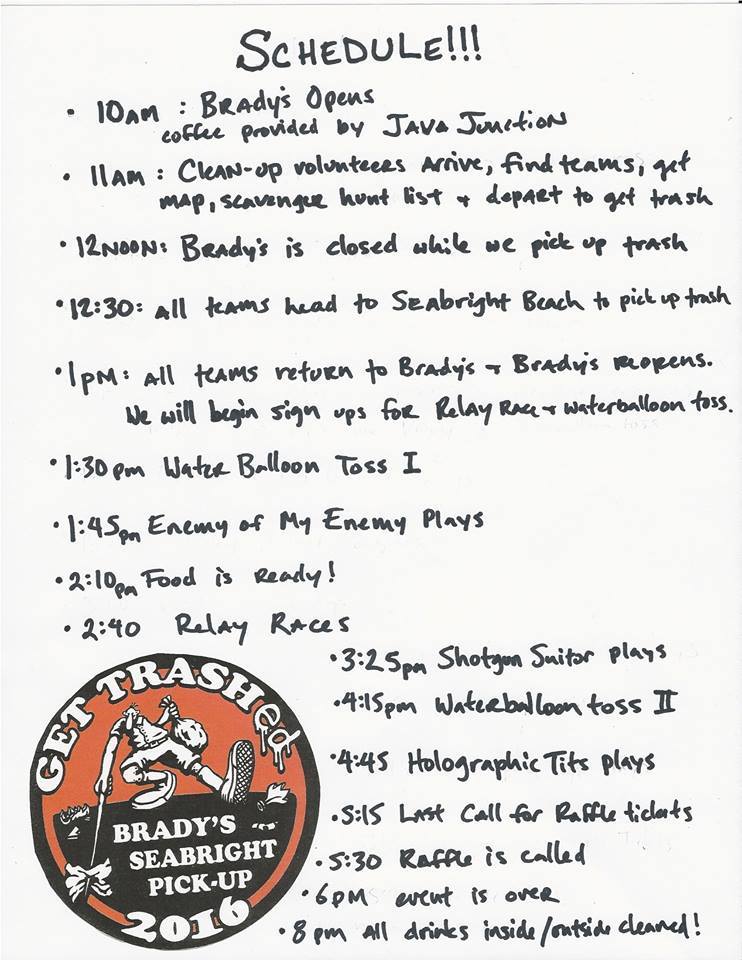 SCHEDULE!!!
• 10AM : BRADy's Opens
coffee provided by JAVA JUNCTION
• 11AM : CLEAN-UP volunteers Arrive, find teams, get
map, scavenger hunt list + depart to get trash
• 12NOON: BRADy's is closed while we pick up trash
• 12:30: All teams head to SEABRIGHT BEACH to pick up trash
• 1pm: All teams return to Brady's + Brady's reopens.
We will begin sign ups for Relay Race + waterballoon toss.
• 1:30pm Water Balloon Toss I
• 1:45pm Enemy of My Enemy Plays
• 2:10pm Food is Ready!
• 2:40 Relay Races
• 3:25pm Shotgun Suitor plays
• 4:15pm Waterballoon toss II
• 4:45 Holographic Tits plays
• 5:15 Last Call for Raffle tickets
• 5:30 Raffle is called
• 6PM event is over
• 8pm All drinks inside/outside cleaned!
GET TRASHed
BRADY'S
SEABRIGHT
PICK-UP
2016